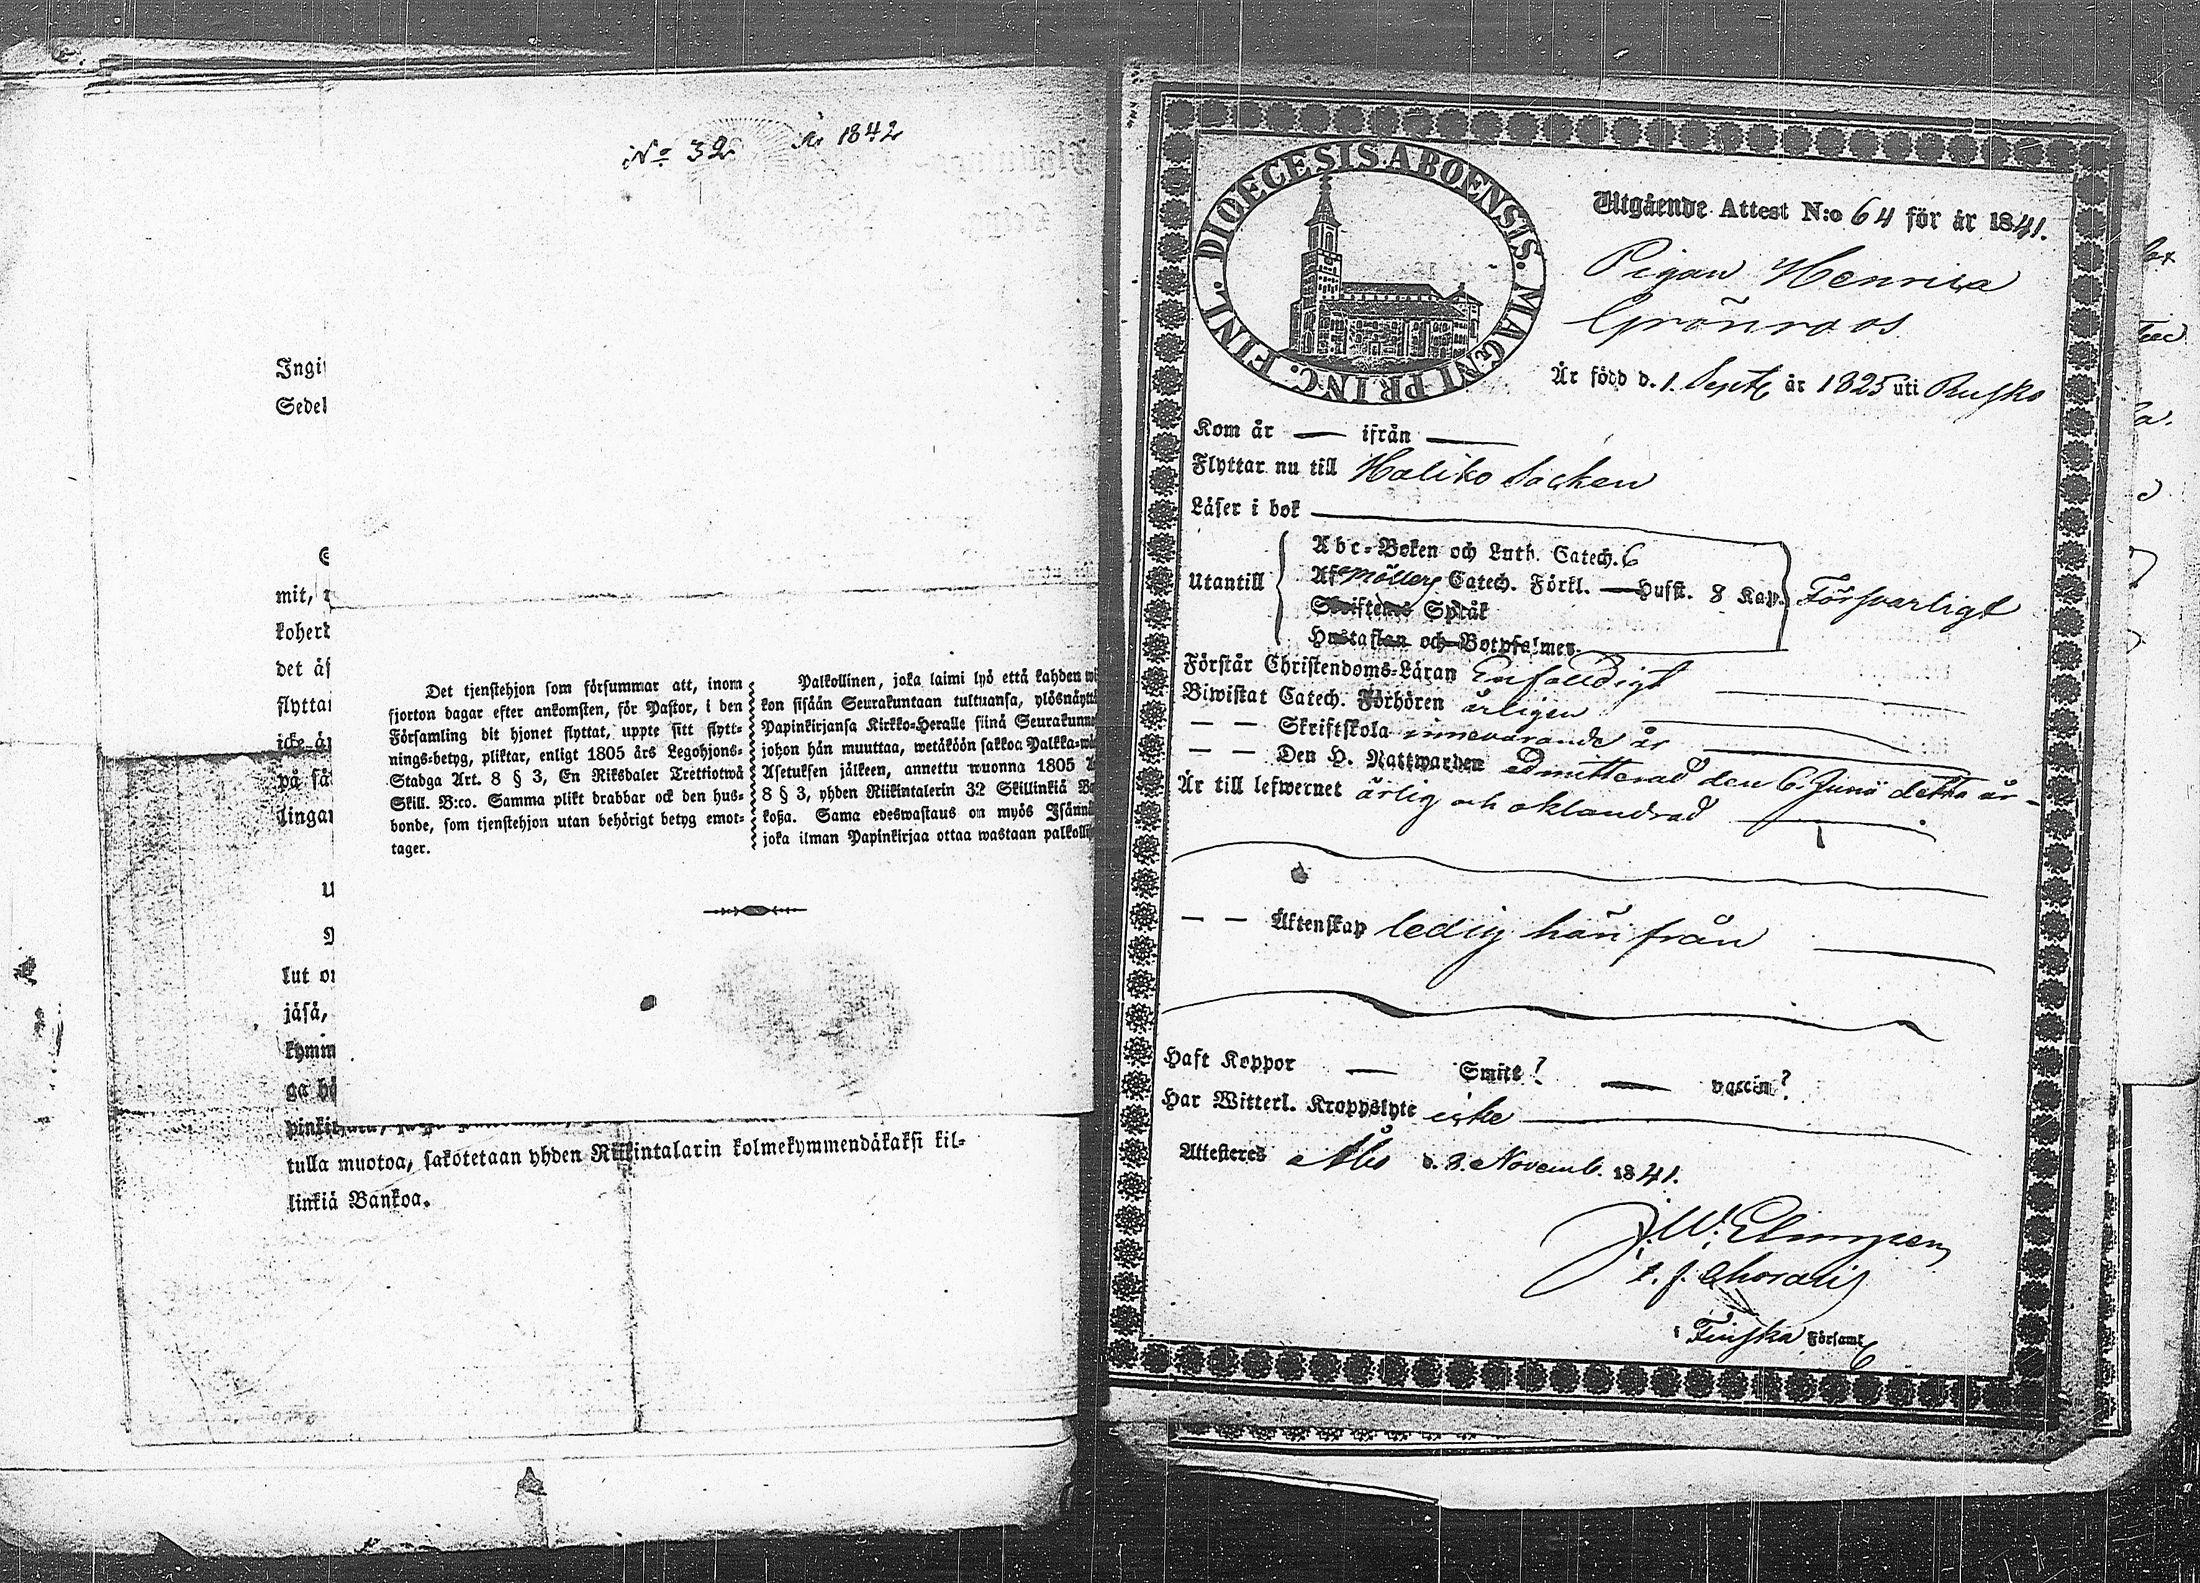 No 32 År 1842
Ingi
Sedel
mit,
koher
det äf
flyttar
icke är
på få
lingar
Det tjenstehjon som försummar att, inom
fjorton dagar efter ankomsten, för Pastor, i den
Församling dit hjonet flyttat, uppte sitt flytt-
nings-betyg, pliktar, enligt 1805 års Legohjons-
Stadga Art. 8 § 3, En Riksdaler Trettiotwå
Skill. B:co. Samma plikt drabbar ock den hus-
bonde, som tjenstehjon utan behörigt betyg emot-
tager.
Palkollinen, joka laimi lyö että kahden wi
kon sisään Seurakuntaan tultuansa, ylösnäyttä
Papinkirjansa Kirkko-Heralle siinä Seurakunna
johon hän muuttaa, wetäköön sakkoa Palkka-wä
Asetuksen jälkeen, annettu wuonna 1805
8 § 3, yhden Riikintalerin 32 Skillinkiä B
koßa. Sama edeswastaus on myös Isännä
joka ilman Papinkirjaa ottaa wastaan palkolli
lut on
jäsä,
kymm
ga
tulla muotoa, sakotetaan yhden Riikintalarin kolmekymmendäkaksi kil-
linkiä Bankoa.
DIOECESIS ABOENSIS. MAGNI PRINC. FINL.
Utgående Attest N:o 64 för år 1841.
Pigan Henrica
Grönroos.
Är född d. 1. Septb år 1825 uti Rusko
Kom år — ifrån —
Flyttar nu till Haliko Socken
Läser i bok —
Utantill
Abc-Boken och Luth. Catech. 6
Af Möllers Catech. Förkl. — Husst. 8 Kap.
Skriftens Språk
Hustaflan och Botpsalmen.
Försvarligt
Förstår Christendoms-Läran Enfaldigt
Biwistat Catech. Förhören årligen
— — Skriftskola innevarande år
— — Den H. Nattwarden Admitterad den 6. Junii detta år-
Är till lefwernet ärlig och oklandrad
— — Äktenskap ledig härifrån
Haft Koppor — Smitt? — vaccin?
Har Witterl. Kroppslyte icke
Attesteres Åbo d. 8. Novemb. 1841.
t. f.
i Finska Församl